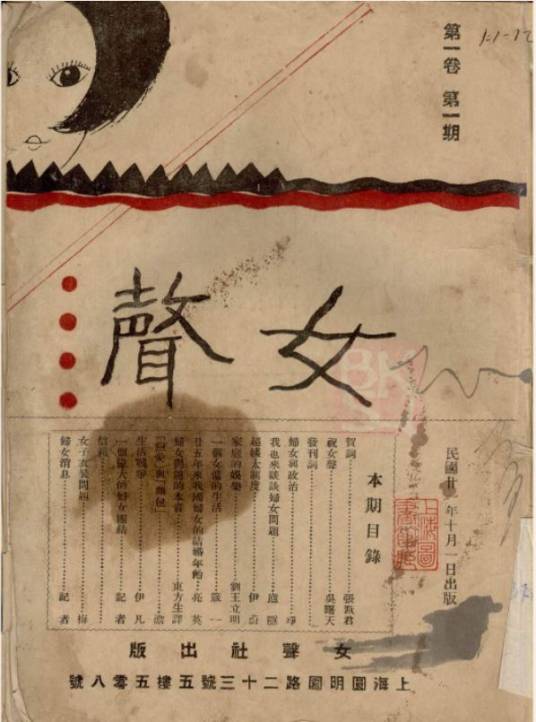 第一卷 第一期
女聲
民國廿年十月一日出版
本期目錄
賀詞……張默君
祝女聲……吳曙天
發刊詞
婦女與政治……
我也來談談婦女問題……
太制度……伊蔚
家庭的娛樂……劉王立明
一個女傭的生活……一
廿五年來我國婦女的結婚年齡……亮英
婦女問題的本質……東方生譯
「戀愛」與「麵包」……
生活戰爭……伊凡
一個偉大的婦女團結……記者
信箱
女子衣裝問題……梅
婦女消息……記者
女聲社出版
上海圓明園路二十三號五樓五零八號